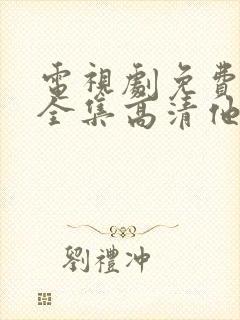 電視劇免費
全集高清他
劉禮沖